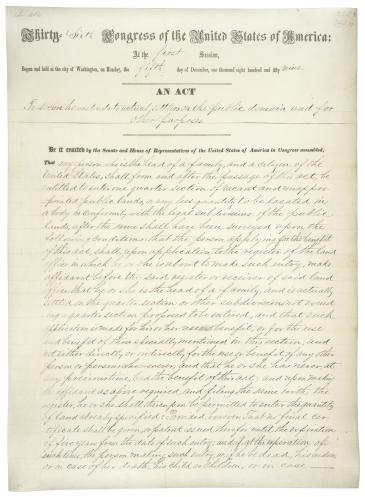 Thirty-Sixth Congress of the United States of America;
At the first Session,
Begun and held at the city of Washington, on Monday, the fifth day of December, one thousand eight hundred and fifty nine.
AN ACT
To secure homesteads to actual settlers on the public domain and for
other purposes
Be it enacted by the Senate and House of Representatives of the United States of America in Congress assembled,
That any person who is the head of a family, and a citizen of the
United States, shall from and after the passage of this act, be
entitled to enter one quarter section of vacant and unappro-
priated public lands, or any less quantity to be located in
a body in conformity with the legal subdivisions of the public
lands, after the same shall have been surveyed upon the
following conditions; that the person applying for the benefit
of this act, shall, upon application to the register of the land
office in which he or she is about to make such entry, make
affidavit before the said register or receiver of said land
office that he or she is the head of a family, and is actually
settled on the quarter section or other subdivision not exceed-
ing a quarter section proposed to be entered, and that such
application is made for his or her use and benefit, or for the use
and benefit of those specially mentioned in this section, and
not either directly or indirectly for the use or benefit of any other
person or persons whomsoever, and that he or she has never at
any previous time, had the benefit of this act; and upon making
the affidavit as above required, and filing the same with the
register, he or she shall thereupon be permitted to enter the quantity
of land already specified: Provided, however, That no final cer-
tificate shall be given, or patent issued therefor until the expiration
of five years from the date of such entry; and if at the expiration of
such time, the person making such entry or, if he be dead, his widow,
or in case of her death, his child or children, or in case